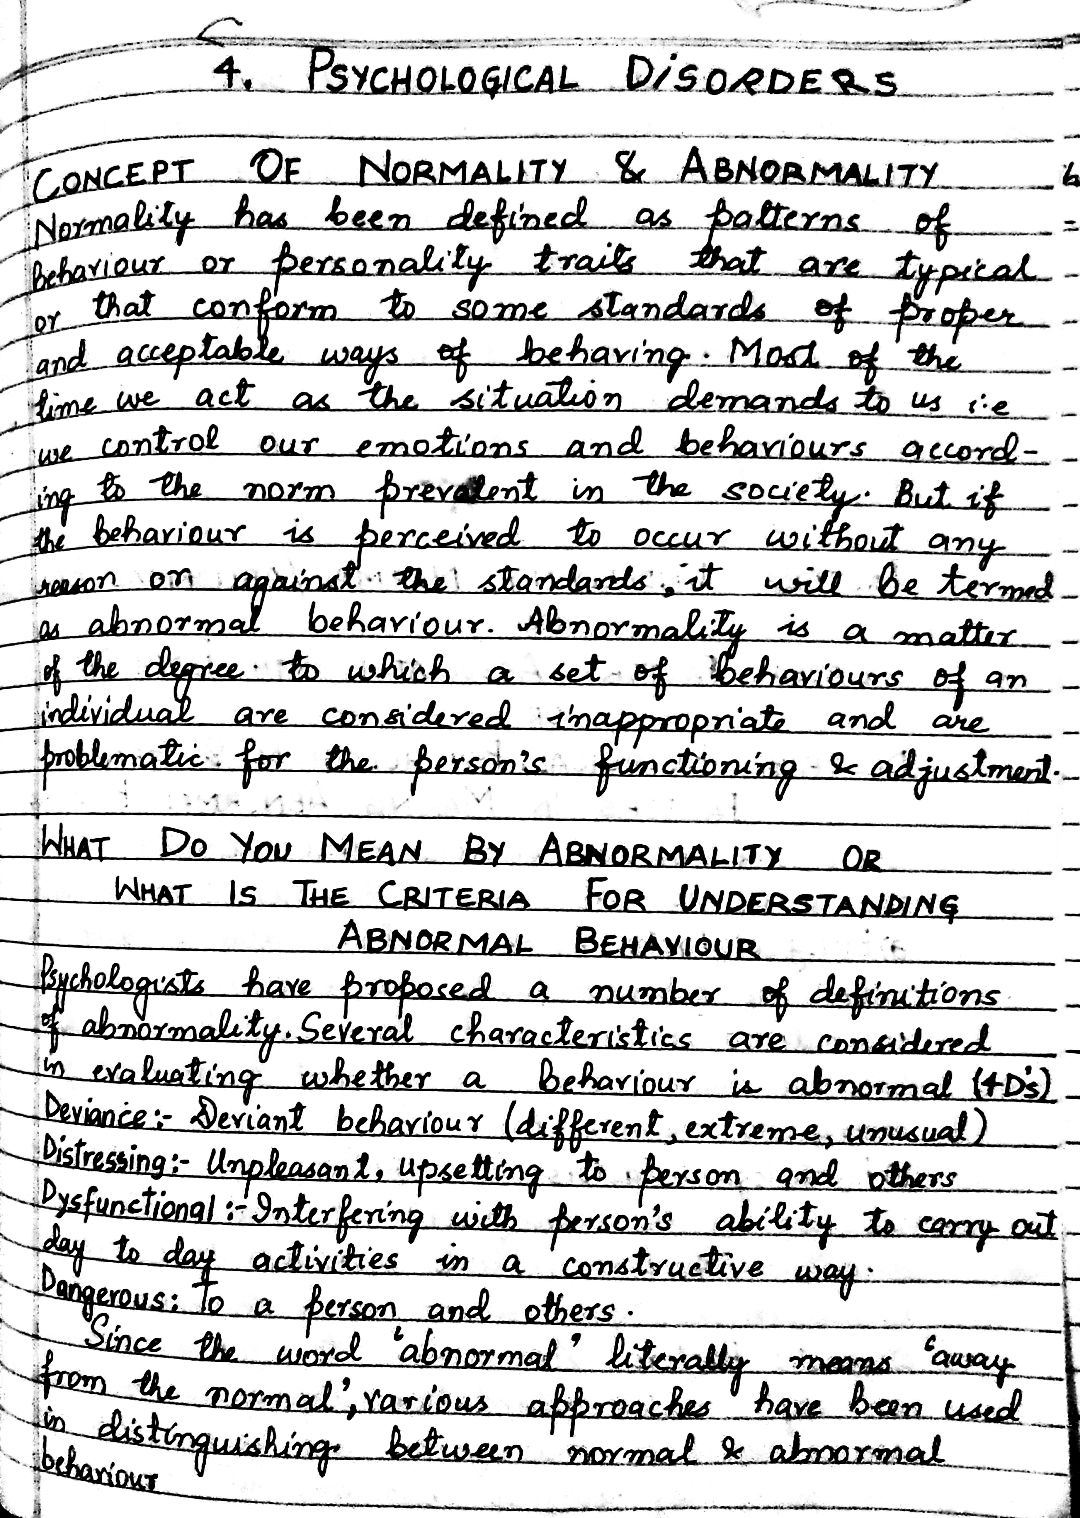 4. PSYCHOLOGICAL DISORDERS
CONCEPT OF NORMALITY & ABNORMALITY
Normality has been defined as patterns of
behaviour or personality traits that are typical
or that conform to some standards of proper
and acceptable ways of behaving. Most of the
time we act as the situation demands to us i.e
we control our emotions and behaviours accord-
ing to the norm prevalent in the society. But if
the behaviour is perceived to occur without any
reason on against the standards, it will be termed
as abnormal behaviour. Abnormality is a matter
of the degree to which a set of behaviours of an
individual are considered inappropriate and are
problematic for the person's functioning & adjustment.
WHAT DO YOU MEAN BY ABNORMALITY OR
WHAT IS THE CRITERIA FOR UNDERSTANDING
ABNORMAL BEHAVIOUR
Psychologists have proposed a number of definitions
of abnormality. Several characteristics are considered
in evaluating whether a behaviour is abnormal (4D's)
Deviance:- Deviant behaviour (different, extreme, unusual)
Distressing:- Unpleasant, upsetting to person and others
Dysfunctional:- Interfering with person's ability to carry out
day to day activities in a constructive way.
Dangerous: To a person and others.
Since the word 'abnormal' literally means 'away
from the normal', various approaches have been used
in distinguishing between normal & abnormal
behaviour